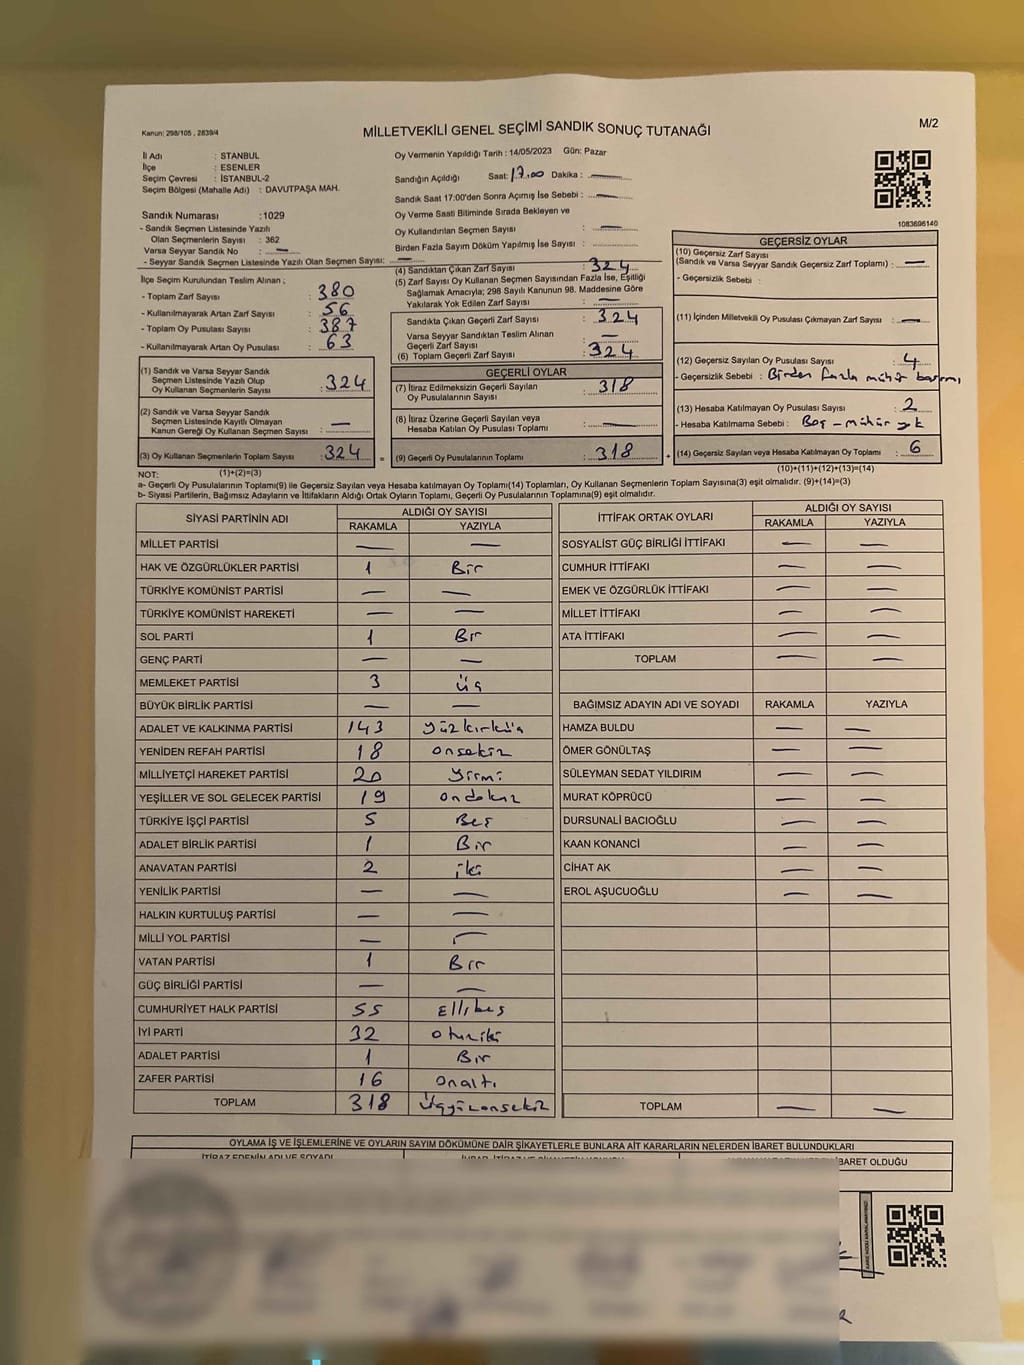 M/2
Kanun: 298/105 , 2839/4
MİLLETVEKİLİ GENEL SEÇİMİ SANDIK SONUÇ TUTANAĞI
İl Adı : STANBUL
İlçe : ESENLER
Seçim Çevresi : İSTANBUL-2
Seçim Bölgesi (Mahalle Adı) : DAVUTPAŞA MAH.
Sandık Numarası : 1029
- Sandık Seçmen Listesinde Yazılı
Olan Seçmenlerin Sayısı : 362
Varsa Seyyar Sandık No : —
- Seyyar Sandık Seçmen Listesinde Yazılı Olan Seçmen Sayısı: —
Oy Vermenin Yapıldığı Tarih : 14/05/2023 Gün: Pazar
Sandığın Açıldığı Saat: 17.00 Dakika : —
Sandık Saat 17:00'den Sonra Açımış İse Sebebi : —
Oy Verme Saati Bitiminde Sırada Bekleyen ve
Oy Kullandırılan Seçmen Sayısı : —
Birden Fazla Sayım Döküm Yapılmış İse Sayısı :
1083696140
İlçe Seçim Kurulundan Teslim Alınan ;
- Toplam Zarf Sayısı : 380
- Kullanılmayarak Artan Zarf Sayısı : 56
- Toplam Oy Pusulası Sayısı : 387
- Kullanılmayarak Artan Oy Pusulası : 63
(1) Sandık ve Varsa Seyyar Sandık
Seçmen Listesinde Yazılı Olup
Oy Kullanan Seçmenlerin Sayısı : 324
(2) Sandık ve Varsa Seyyar Sandık
Seçmen Listesinde Kayıtlı Olmayan
Kanun Gereği Oy Kullanan Seçmen Sayısı : —
(3) Oy Kullanan Seçmenlerin Toplam Sayısı : 324 =
(4) Sandıktan Çıkan Zarf Sayısı : 324
(5) Zarf Sayısı Oy Kullanan Seçmen Sayısından Fazla İse, Eşitliği
Sağlamak Amacıyla; 298 Sayılı Kanunun 98. Maddesine Göre
Yakılarak Yok Edilen Zarf Sayısı : —
Sandıkta Çıkan Geçerli Zarf Sayısı : 324
Varsa Seyyar Sandıktan Teslim Alınan
Geçerli Zarf Sayısı : —
(6) Toplam Geçerli Zarf Sayısı : 324
GEÇERLİ OYLAR
(7) İtiraz Edilmeksizin Geçerli Sayılan
Oy Pusulalarının Sayısı : 318
(8) İtiraz Üzerine Geçerli Sayılan veya
Hesaba Katılan Oy Pusulası Toplamı : —
(9) Geçerli Oy Pusulalarının Toplamı : 318 +
GEÇERSİZ OYLAR
(10) Geçersiz Zarf Sayısı
(Sandık ve Varsa Seyyar Sandık Geçersiz Zarf Toplamı) : —
- Geçersizlik Sebebi :
(11) İçinden Milletvekili Oy Pusulası Çıkmayan Zarf Sayısı : —
(12) Geçersiz Sayılan Oy Pusulası Sayısı : 4
- Geçersizlik Sebebi : Birden fazla mühür basımı
(13) Hesaba Katılmayan Oy Pusulası Sayısı : 2
- Hesaba Katılmama Sebebi : Boş - mühür yok
(14) Geçersiz Sayılan veya Hesaba Katılmayan Oy Toplamı : 6
NOT: (1)+(2)=(3)
(10)+(11)+(12)+(13)=(14)
a- Geçerli Oy Pusulalarının Toplamı(9) ile Geçersiz Sayılan veya Hesaba katılmayan Oy Toplamı(14) Toplamları, Oy Kullanan Seçmenlerin Toplam Sayısına(3) eşit olmalıdır. (9)+(14)=(3)
b- Siyasi Partilerin, Bağımsız Adayların ve İttifakların Aldığı Ortak Oyların Toplamı, Geçerli Oy Pusulalarının Toplamına(9) eşit olmalıdır.
SİYASİ PARTİNİN ADI ALDIĞI OY SAYISI
RAKAMLA YAZIYLA
MİLLET PARTİSİ — —
HAK VE ÖZGÜRLÜKLER PARTİSİ 1 Bir
TÜRKİYE KOMÜNİST PARTİSİ — —
TÜRKİYE KOMÜNİST HAREKETİ — —
SOL PARTİ 1 Bir
GENÇ PARTİ — —
MEMLEKET PARTİSİ 3 Üç
BÜYÜK BİRLİK PARTİSİ — —
ADALET VE KALKINMA PARTİSİ 143 yüzkırküç
YENİDEN REFAH PARTİSİ 18 onsekiz
MİLLİYETÇİ HAREKET PARTİSİ 20 Yirmi
YEŞİLLER VE SOL GELECEK PARTİSİ 19 ondokuz
TÜRKİYE İŞÇİ PARTİSİ 5 Beş
ADALET BİRLİK PARTİSİ 1 Bir
ANAVATAN PARTİSİ 2 iki
YENİLİK PARTİSİ — —
HALKIN KURTULUŞ PARTİSİ — —
MİLLİ YOL PARTİSİ — —
VATAN PARTİSİ 1 Bir
GÜÇ BİRLİĞİ PARTİSİ — —
CUMHURİYET HALK PARTİSİ 55 Ellibeş
İYİ PARTİ 32 otuziki
ADALET PARTİSİ 1 Bir
ZAFER PARTİSİ 16 onaltı
TOPLAM 318 Üçyüzonsekiz
İTTİFAK ORTAK OYLARI ALDIĞI OY SAYISI
RAKAMLA YAZIYLA
SOSYALİST GÜÇ BİRLİĞİ İTTİFAKI — —
CUMHUR İTTİFAKI — —
EMEK VE ÖZGÜRLÜK İTTİFAKI — —
MİLLET İTTİFAKI — —
ATA İTTİFAKI — —
TOPLAM — —
BAĞIMSIZ ADAYIN ADI VE SOYADI RAKAMLA YAZIYLA
HAMZA BULDU — —
ÖMER GÖNÜLTAŞ — —
SÜLEYMAN SEDAT YILDIRIM — —
MURAT KÖPRÜCÜ — —
DURSUNALİ BACIOĞLU — —
KAAN KONANCİ — —
CİHAT AK — —
EROL AŞUCUOĞLU — —
TOPLAM — —
OYLAMA İŞ VE İŞLEMLERİNE VE OYLARIN SAYIM DÖKÜMÜNE DAİR ŞİKAYETLERLE BUNLARA AİT KARARLARIN NELERDEN İBARET BULUNDUKLARI
İTİRAZ EDENİN ADI VE SOYADI
İBARET OLDUĞU